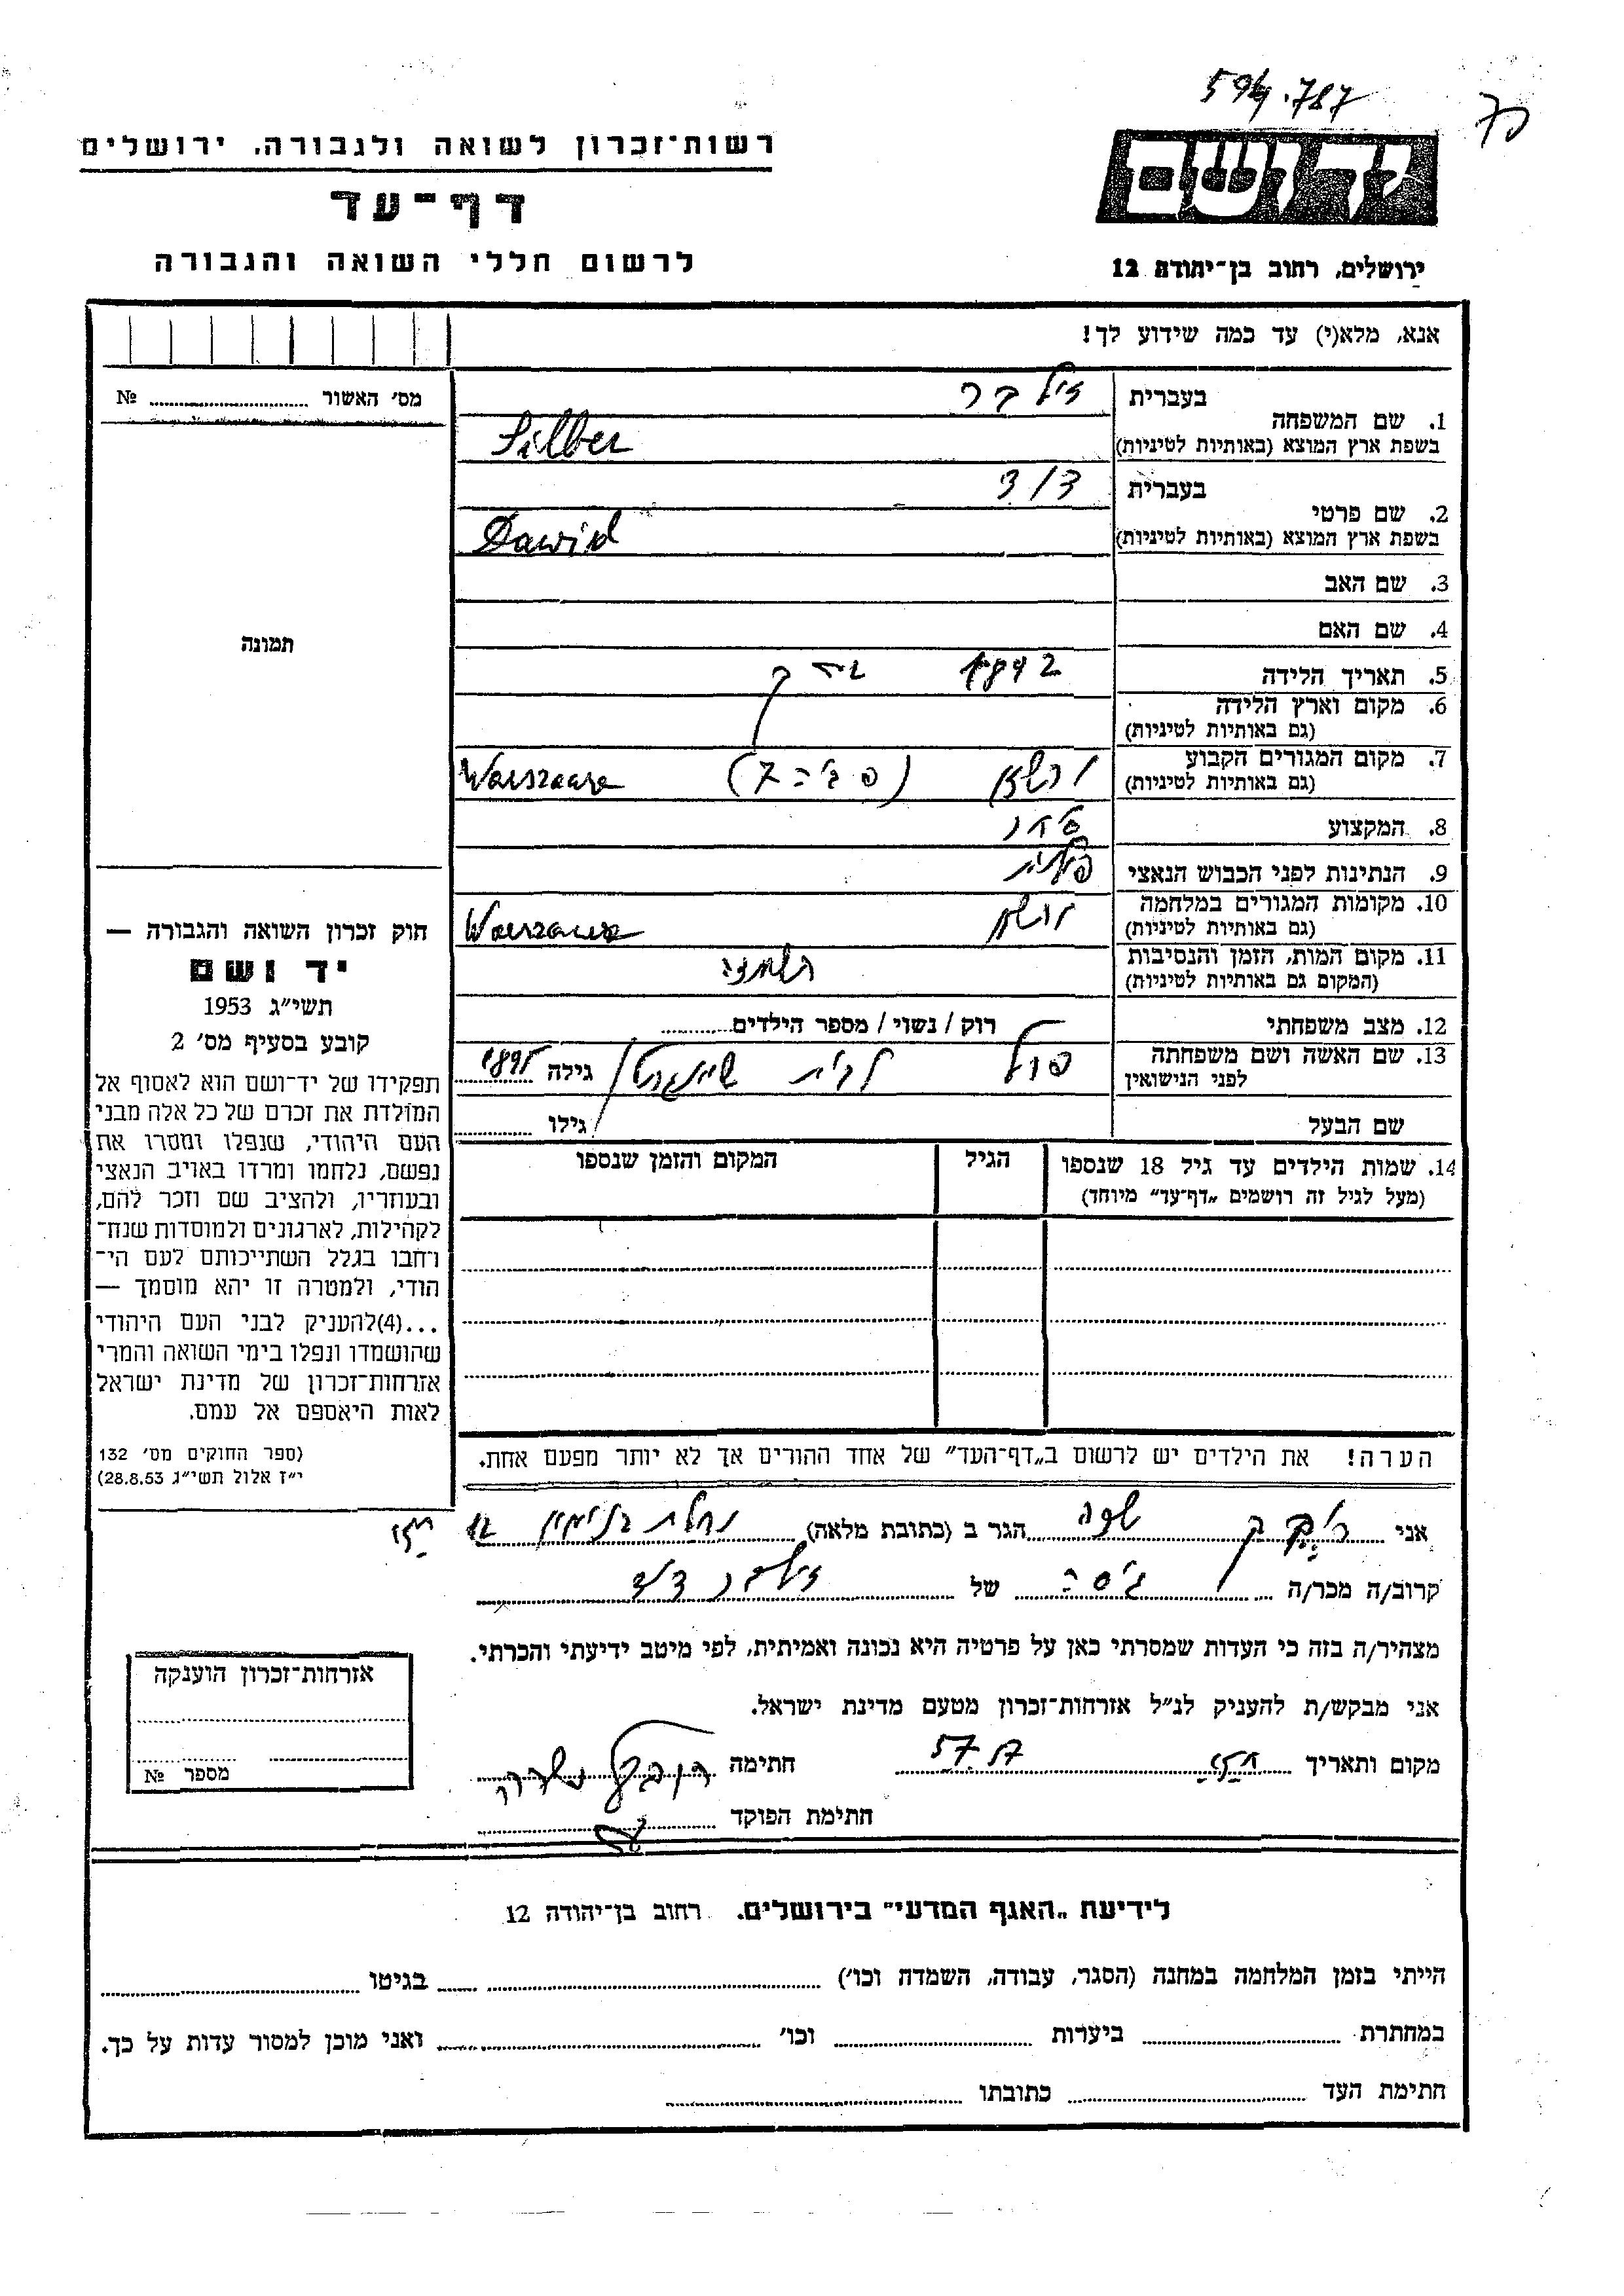 594.787
רשות־זכרון לשואה ולגבורה, ירושלים
יד ושם
דף־עד
לרשום חללי השואה והגבורה
ירושלים, רחוב בן־יהודה 12
אנא, מלא(י) עד כמה שידוע לך!
מס׳ האשור № 
1. שם המשפחה בעברית זילבר
בשפת ארץ המוצא (באותיות לטיניות) Silber
2. שם פרטי בעברית דוד
בשפת ארץ המוצא (באותיות לטיניות) Dawid
3. שם האב
4. שם האם
תמונה
5. תאריך הלידה 1892
6. מקום וארץ הלידה
(גם באותיות לטיניות)
7. מקום המגורים הקבוע ורשא
(גם באותיות לטיניות) Warszawa
8. המקצוע סוחר
9. הנתינות לפני הכבוש הנאצי פולנית
10. מקומות המגורים במלחמה ורשא
(גם באותיות לטיניות) Warszawa
11. מקום המות, הזמן והנסיבות
(המקום גם באותיות לטיניות)
12. מצב משפחתי רוק / נשוי / מספר הילדים
13. שם האשה ושם משפחתה
לפני הנישואין לבית גילה 1895
שם הבעל גילו
14. שמות הילדים עד גיל 18 שנספו הגיל המקום והזמן שנספו
(מעל לגיל זה רושמים „דף־עד״ מיוחד)
חוק זכרון השואה והגבורה —
יד ושם
תשי״ג 1953
קובע בסעיף מס׳ 2
תפקידו של יד־ושם הוא לאסוף אל
המולדת את זכרם של כל אלה מבני
העם היהודי, שנפלו ומסרו את
נפשם, נלחמו ומרדו באויב הנאצי
ובעוזריו, ולהציב שם וזכר להם,
לקהילות, לארגונים ולמוסדות שנח־
רחבו בגלל השתייכותם לעם הי־
הודי, ולמטרה זו יהא מוסמך —
...(4)להעניק לבני העם היהודי
שהושמדו ונפלו בימי השואה והמרי
אזרחות־זכרון של מדינת ישראל
לאות היאספם אל עמם.
(ספר החוקים מס׳ 132
י״ז אלול תשי״ג 28.8.53)
הערה! את הילדים יש לרשום ב„דף־העד״ של אחד ההורים אך לא יותר מפעם אחת.
אני הגר ב (כתובת מלאה) נחלת בנימין
קרוב/ה מכר/ה גיסה של זילבר דוד
מצהיר/ה בזה כי העדות שמסרתי כאן על פרטיה היא נכונה ואמיתית, לפי מיטב ידיעתי והכרתי.
אני מבקש/ת להעניק לנ״ל אזרחות־זכרון מטעם מדינת ישראל.
מקום ותאריך חתימה
חתימת הפוקד
אזרחות־זכרון הוענקה
מספר №
לידיעת „האגף המדעי״ בירושלים. רחוב בן־יהודה 12
הייתי בזמן המלחמה במחנה (הסגר, עבודה, השמדה וכו׳) בגיטו
במחתרת ביערות וכו׳ ואני מוכן למסור עדות על כך.
חתימת העד כתובתו